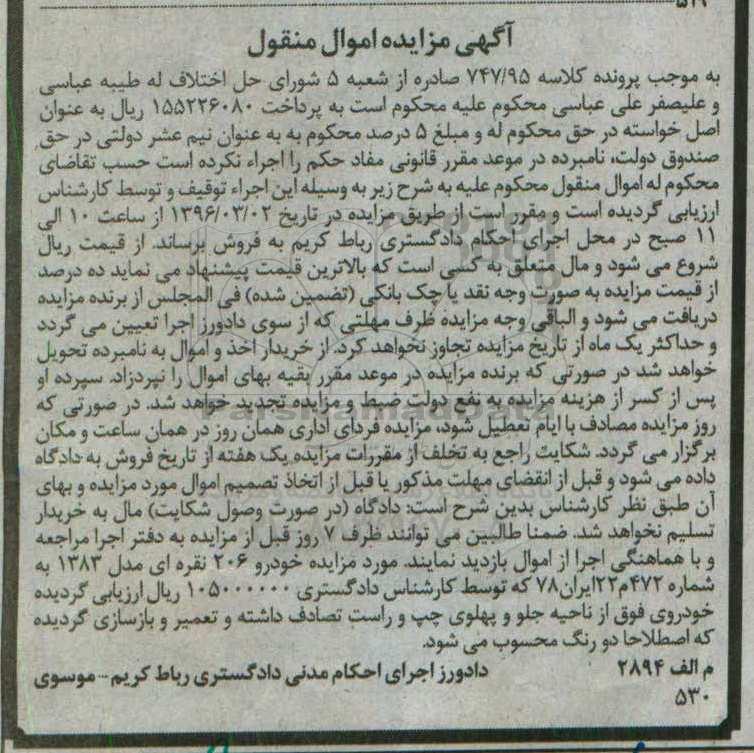 ۵۲۹
آگهی مزایده اموال منقول
به موجب پرونده کلاسه ۷۴۷/۹۵ صادره از شعبه ۵ شورای حل اختلاف له طیبه عباسی
و علیصفر علی عباسی محکوم علیه محکوم است به پرداخت ۱۵۵۲۲۶۰۸۰ ریال به عنوان
اصل خواسته در حق محکوم له و مبلغ ۵ درصد محکوم به به عنوان نیم عشر دولتی در حق
صندوق دولت، نامبرده در موعد مقرر قانونی مفاد حکم را اجراء نکرده است حسب تقاضای
محکوم له اموال منقول محکوم علیه به شرح زیر به وسیله این اجراء توقیف و توسط کارشناس
ارزیابی گردیده است و مقرر است از طریق مزایده در تاریخ ۱۳۹۶/۰۳/۰۲ از ساعت ۱۰ الی
۱۱ صبح در محل اجرای احکام دادگستری رباط کریم به فروش برساند. از قیمت ریال
شروع می شود و مال متعلق به کسی است که بالاترین قیمت پیشنهاد می نماید ده درصد
از قیمت مزایده به صورت وجه نقد یا چک بانکی (تضمین شده) فی المجلس از برنده مزایده
دریافت می شود و الباقی وجه مزایده ظرف مهلتی که از سوی دادورز اجرا تعیین می گردد
و حداکثر یک ماه از تاریخ مزایده تجاوز نخواهد کرد. از خریدار اخذ و اموال به نامبرده تحویل
خواهد شد در صورتی که برنده مزایده در موعد مقرر بقیه بهای اموال را نپردزاد. سپرده او
پس از کسر از هزینه مزایده به نفع دولت ضبط و مزایده تجدید خواهد شد. در صورتی که
روز مزایده مصادف با ایام تعطیل شود، مزایده فردای اداری همان روز در همان ساعت و مکان
برگزار می گردد. شکایت راجع به تخلف از مقررات مزایده یک هفته از تاریخ فروش به دادگاه
داده می شود و قبل از انقضای مهلت مذکور یا قبل از اتخاذ تصمیم اموال مورد مزایده و بهای
آن طبق نظر کارشناس بدین شرح است: دادگاه (در صورت وصول شکایت) مال به خریدار
تسلیم نخواهد شد. ضمنا طالبین می توانند ظرف ۷ روز قبل از مزایده به دفتر اجرا مراجعه
و با هماهنگی اجرا از اموال بازدید نمایند. مورد مزایده خودرو ۲۰۶ نقره ای مدل ۱۳۸۳ به
شماره ۴۷۲م۲۲ایران۷۸ که توسط کارشناس دادگستری ۱۰۵۰۰۰۰۰۰ ریال ارزیابی گردیده
خودروی فوق از ناحیه جلو و پهلوی چپ و راست تصادف داشته و تعمیر و بازسازی گردیده
که اصطلاحا دو رنگ محسوب می شود.
م الف ۲۸۹۴ دادورز اجرای احکام مدنی دادگستری رباط کریم - موسوی
۵۳۰
ParsNamadData